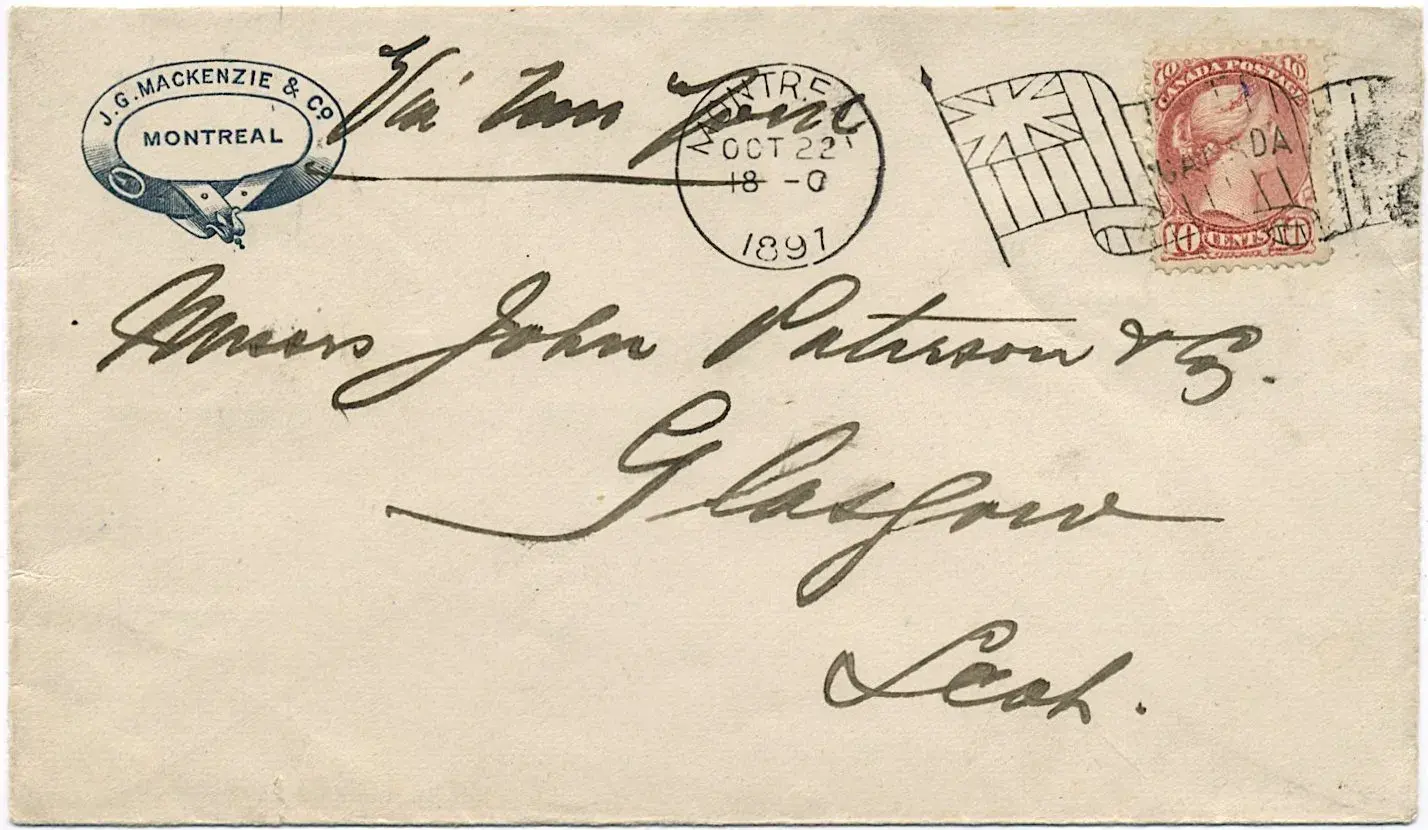 J.G. MACKENZIE & Co
MONTREAL
Via New York
MONTREAL
OCT 22
18 - 0
1897
10 CANADA POSTAGE 10
CANADA
10 CENTS 10
Messrs John Paterson & Co.
Glasgow
Scot.